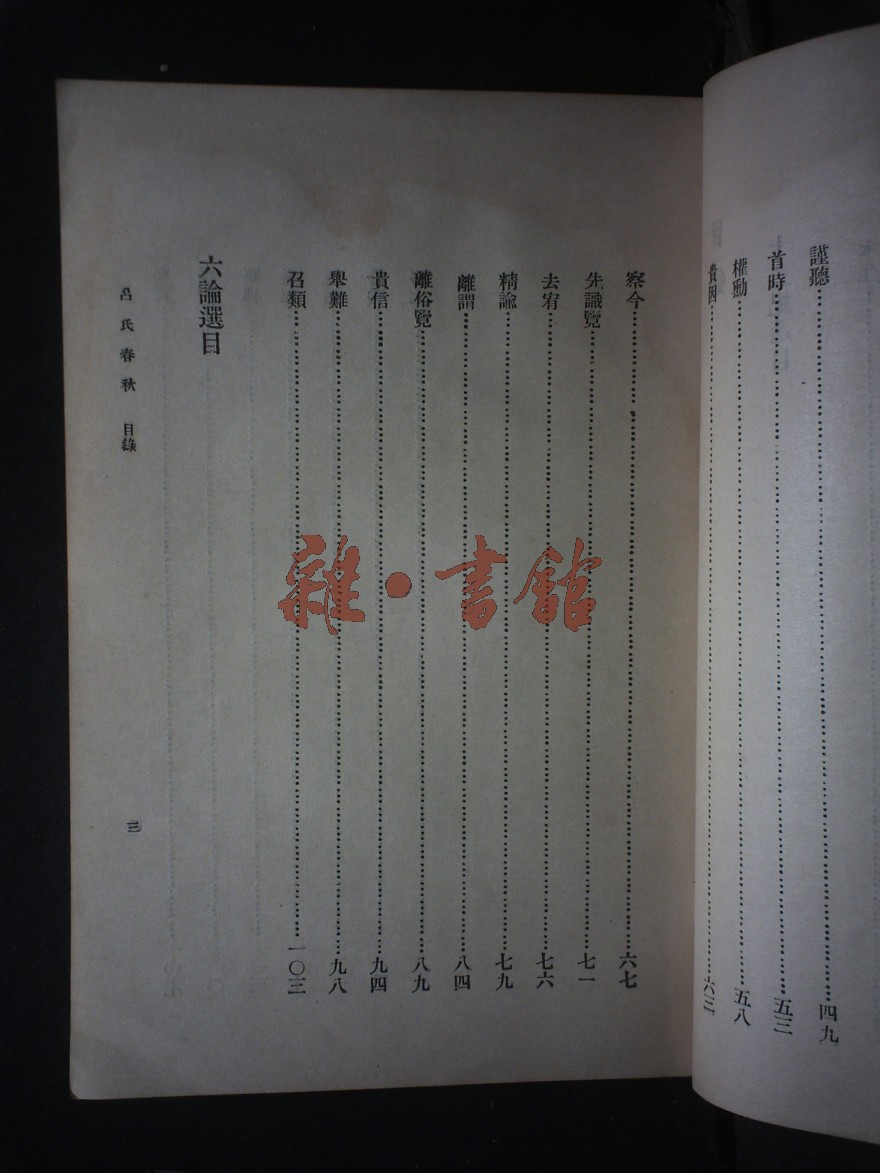 謹聽 四九
首時 五三
權勳 五八
貴因 六三
察今 六七
先識覽 七一
去宥 七六
精諭 七九
離謂 八四
離俗覽 八九
貴信 九四
舉難 九八
召類 一〇三
六論選目
呂氏春秋 目錄
三
雜·書館